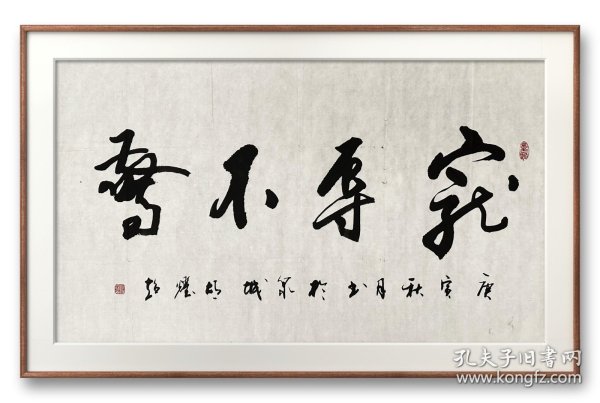 寵辱不驚
庚寅秋月书於泉城
孔夫子旧书网
www.kongfz.com